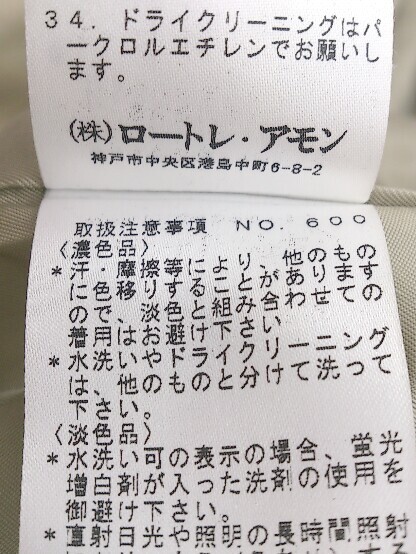 34. ドライクリーニングはパ
ークロルエチレンでお願いし
ます。
(株)ロートレ・アモン
神戸市中央区港島中町6-8-2
取扱注意事項 NO. 600
〈濃色品〉
*汗、摩擦等により、他のもの
に色移りすることがありますの
で、淡色とのみ合わせての
着用はお避け下さい。
*水洗いやドライクリーニング
は、他のものと分けて洗って
下さい。
〈淡色品〉
*水洗い可の表示の場合、蛍光
増白剤が入った洗剤の使用を
御避け下さい。
*直射日光や照明の長時間照射